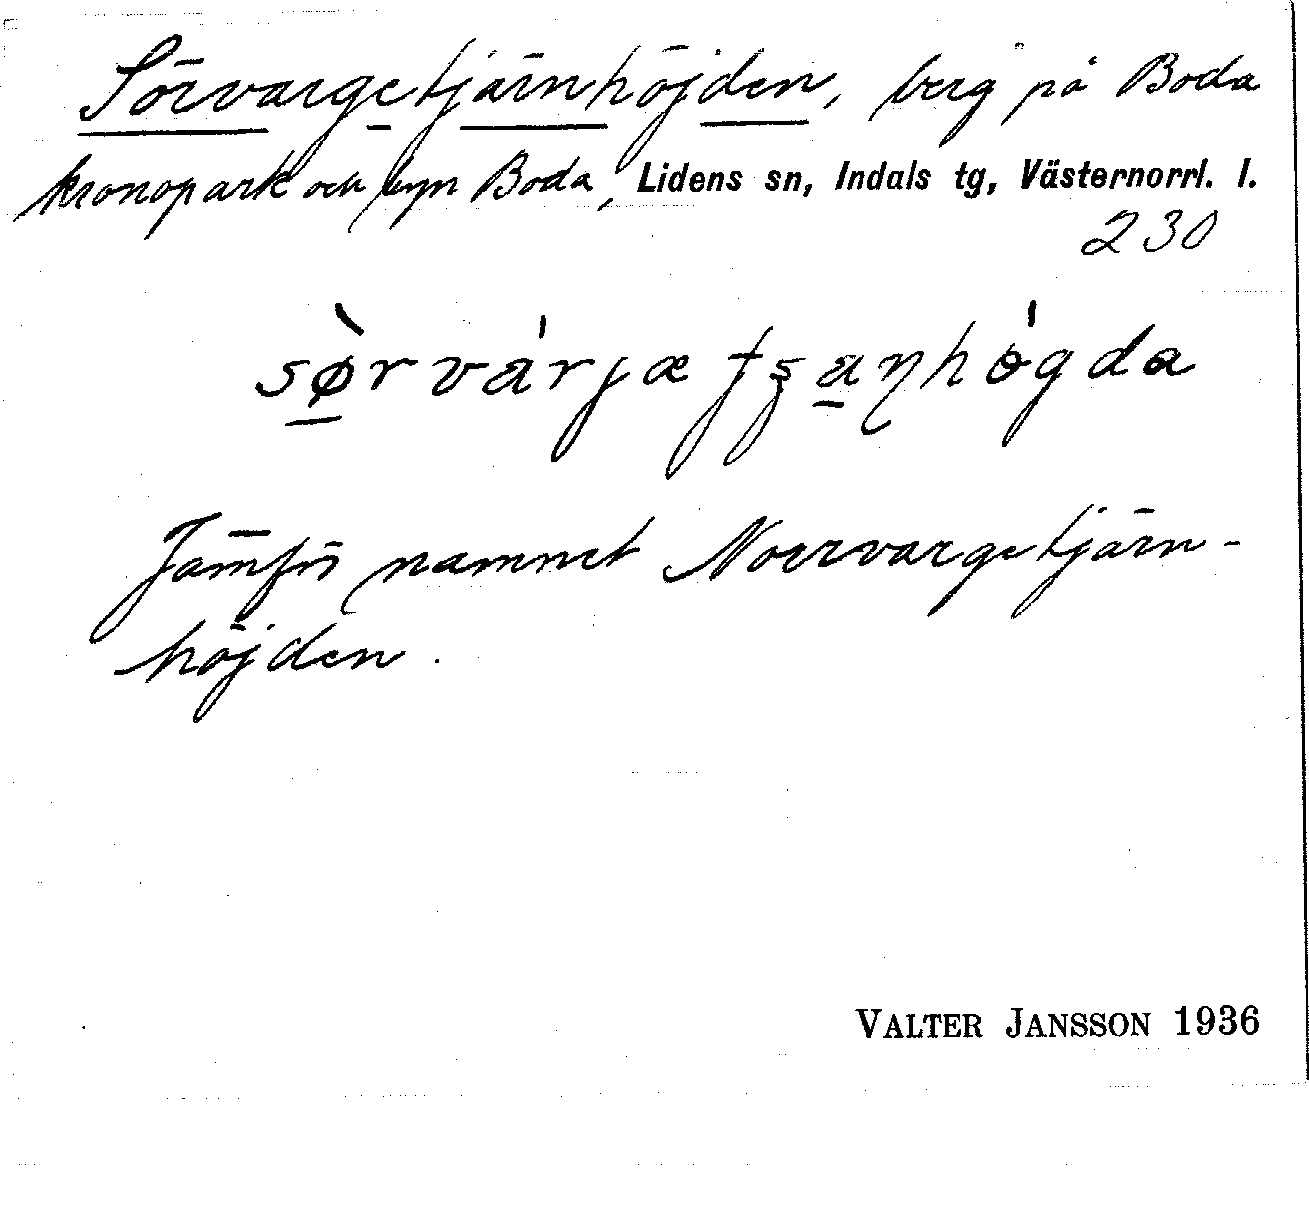 Sörvargetjärnhöjden, berg på Boda
kronopark och byn Boda, Lidens sn, Indals tg, Västernorrl. l.
230
Jämför namnet Norrvargetjärn-
höjden.
VALTER JANSSON 1936